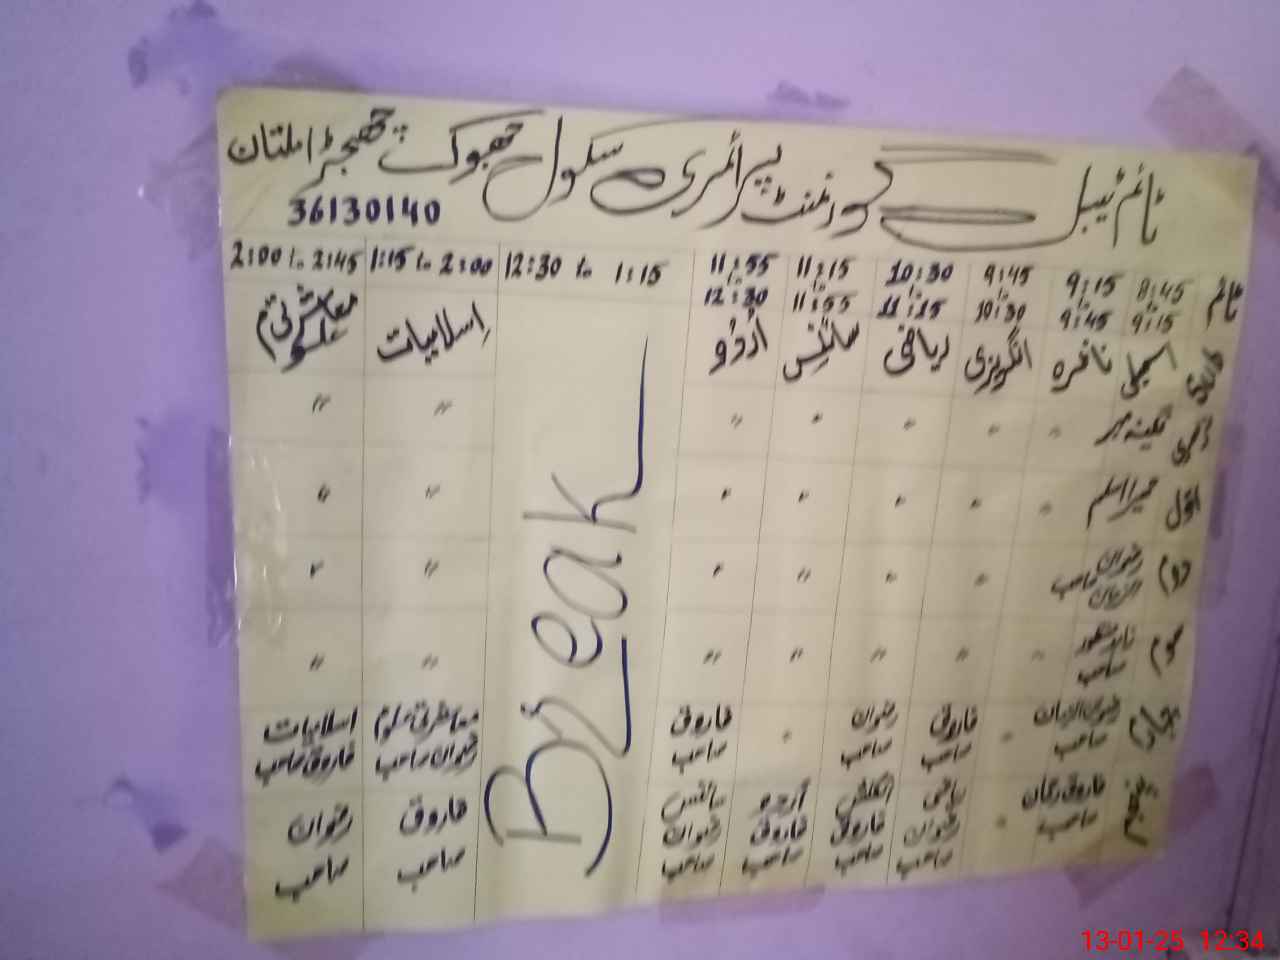 ٹائم ٹیبل گورنمنٹ پرائمری سکول جھوک چھجڑا ملتان
36130140
ٹائم 8:45 to 9:15 9:15 to 9:45 9:45 to 10:30 10:30 to 11:15 11:15 to 11:55 11:55 to 12:30 12:30 to 1:15 1:15 to 2:00 2:00 to 2:45
اسمبلی ناظرہ انگریزی ریاضی سائنس اُردُو اِسلامیات معاشرتی علوم
نگینہ مہر 〃 〃 〃 〃 〃 〃 〃
اوّل حمیرا اسلم 〃 〃 〃 〃 〃 〃 〃
Break
دوم رضوان الزمان صاحب 〃 〃 〃 〃 〃 〃
سوم صاحب 〃 〃 〃 〃 〃 〃 〃
چہارم رضوان الزمان صاحب 〃 فاروق صاحب رضوان صاحب 〃 فاروق صاحب معاشرتی علوم رضوان صاحب اسلامیات فاروق صاحب
پنجم فاروق صاحب 〃 ریاضی رضوان صاحب انگلش فاروق صاحب اردو فاروق صاحب سائنس رضوان صاحب فاروق صاحب رضوان صاحب
13-01-25 12:34